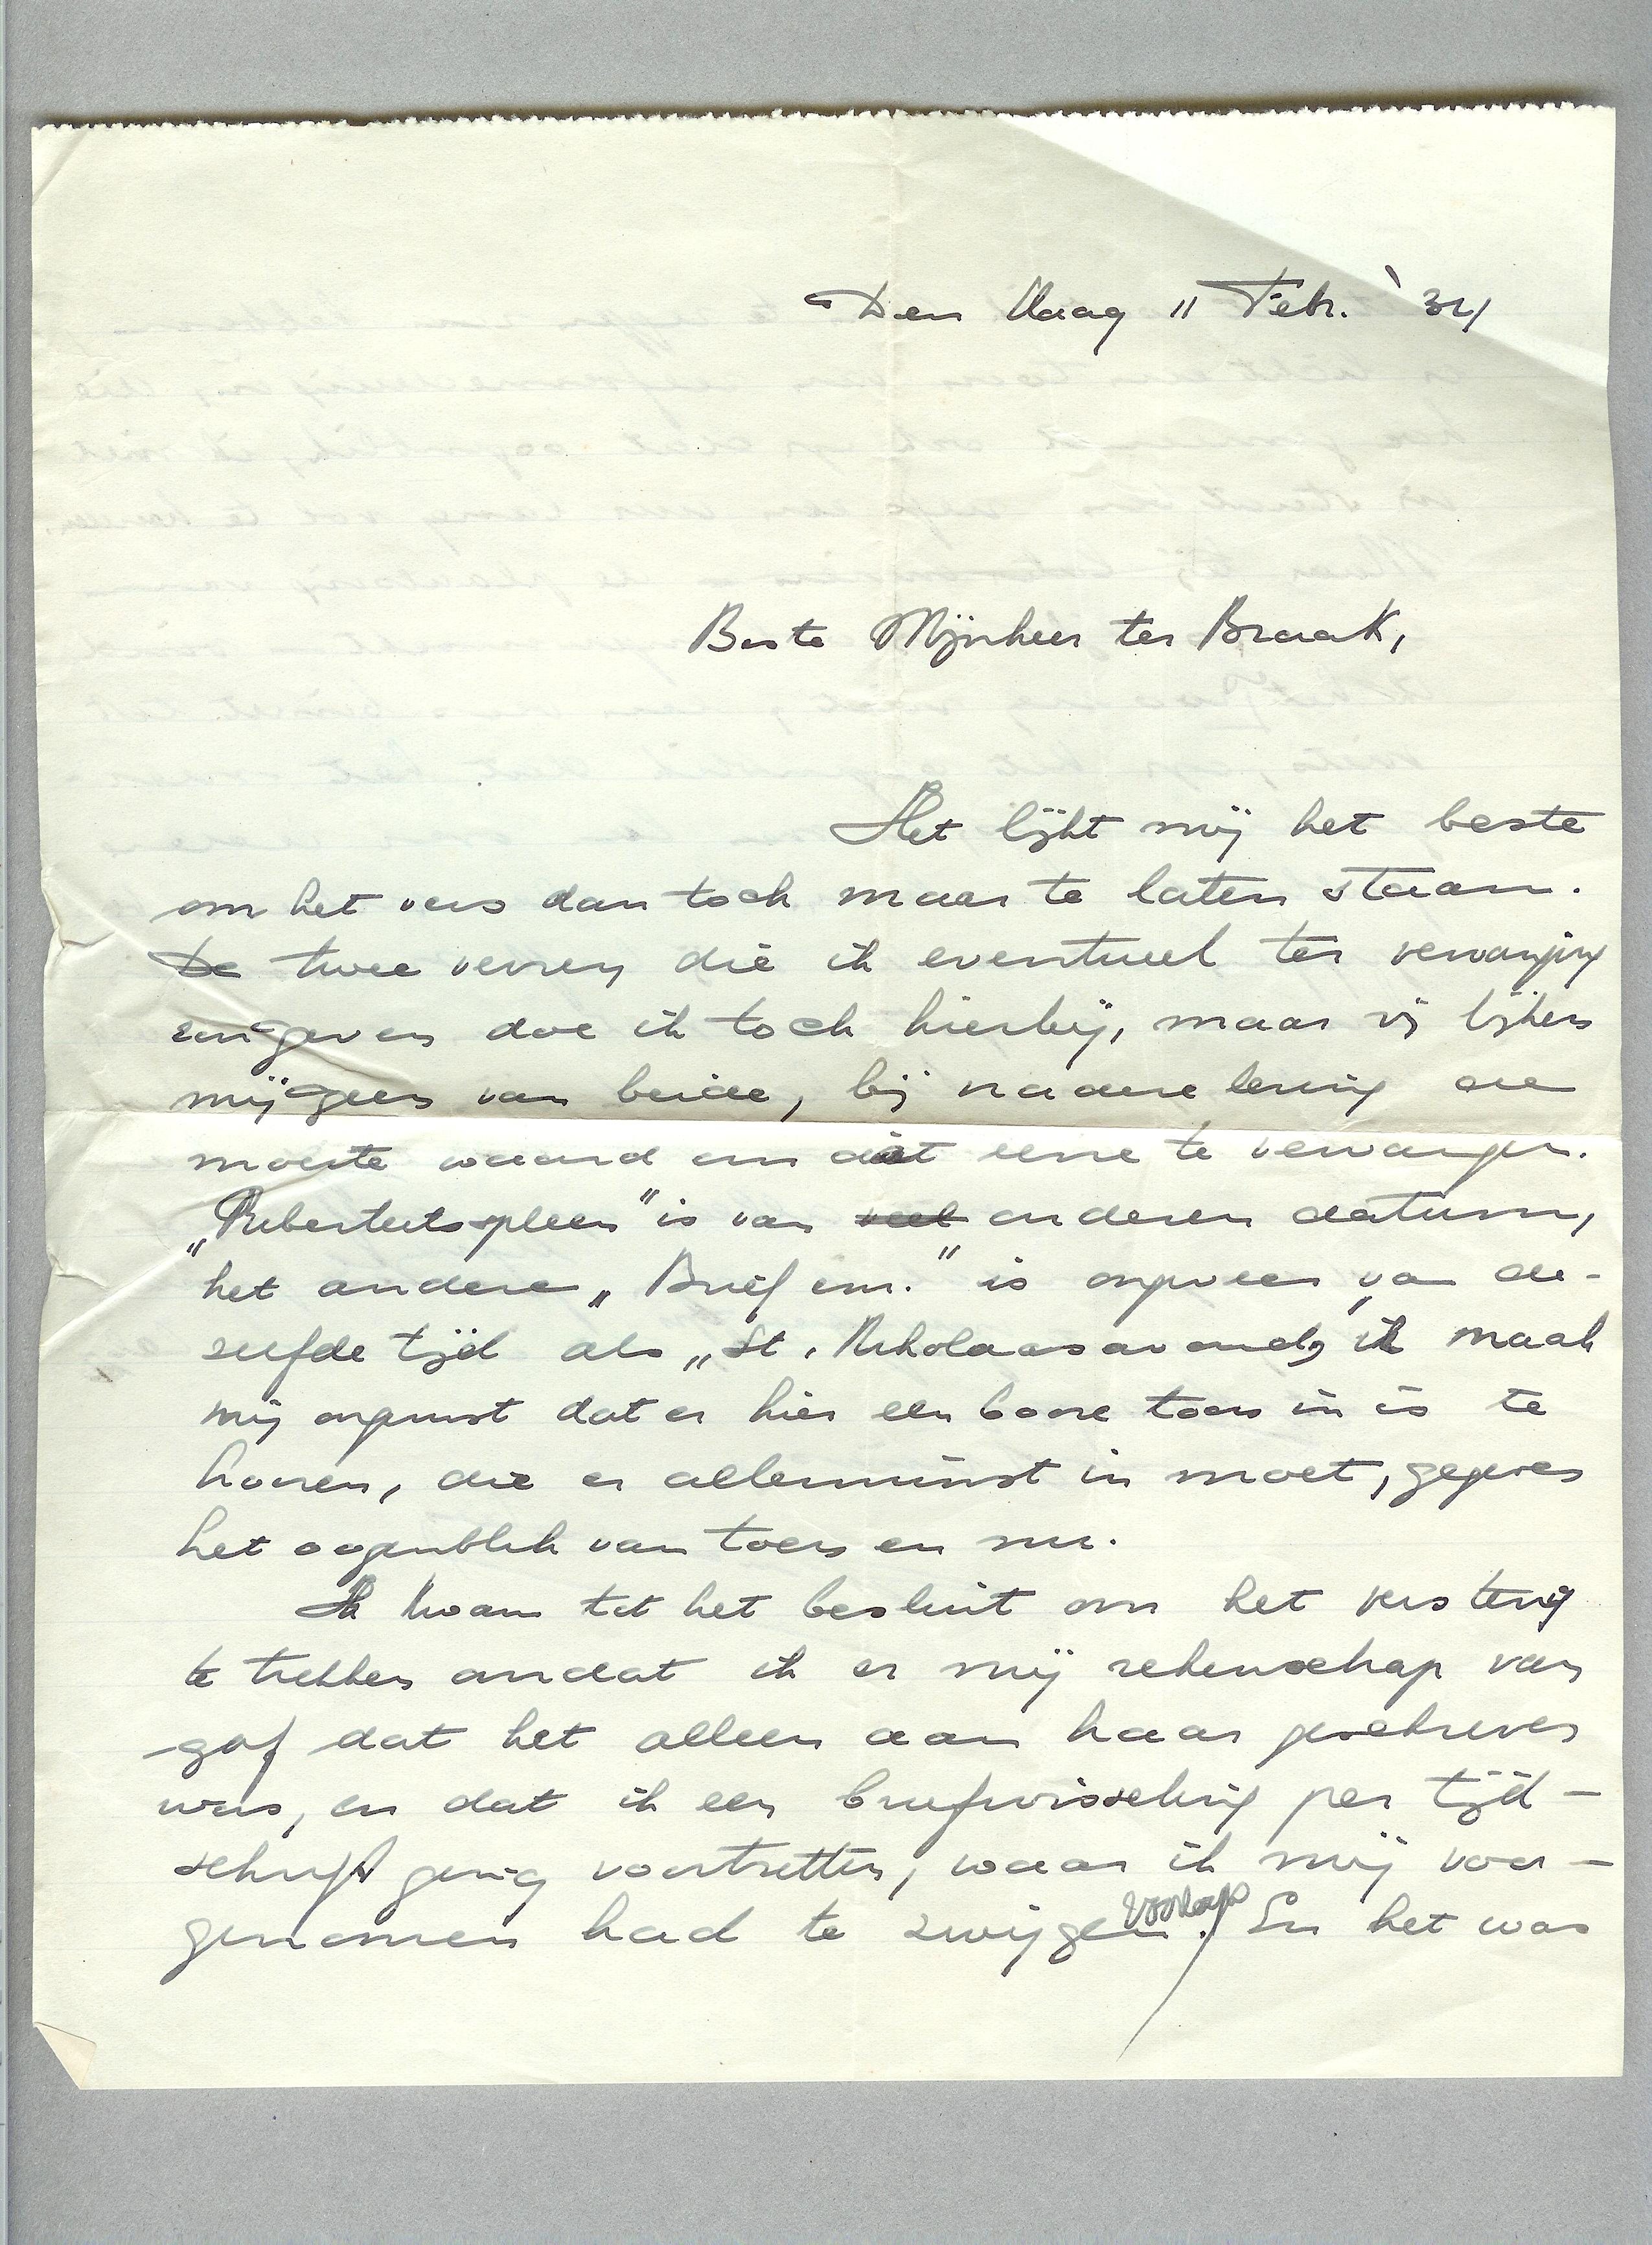 Den Haag 11 Febr. '34
Beste Mijnheer ter Braak,
Het lijkt mij het beste
om het vers dan toch maar te laten staan.
De twee verzen die ik eventueel ter vervanging
aangeven doe ik toch hierbij, maar zij lijken
mij geen van beide, bij nadere lezing de
moeite waard om dàt eene te vervangen.
„Puberteitspleen" is van veel anderen datum,
het andere „Brief enz." is ongeveer van de-
zelfde tijd als „St. Nikolaasavond", ik maak
mij ongerust dat er hier een booze toon in is te
hooren, die er allerminst in moet, gegeven
het oogenblik van toen en nu.
Ik kwam tot het besluit om het vers terug
te trekken omdat ik er mij rekenschap van
gaf dat het alleen aan haar geschreven
was, en dat ik een briefwisseling per tijd-
schrift ging voortzetten, waar ik mij voor-
genomen had te zwijgen voorloopig. En het was